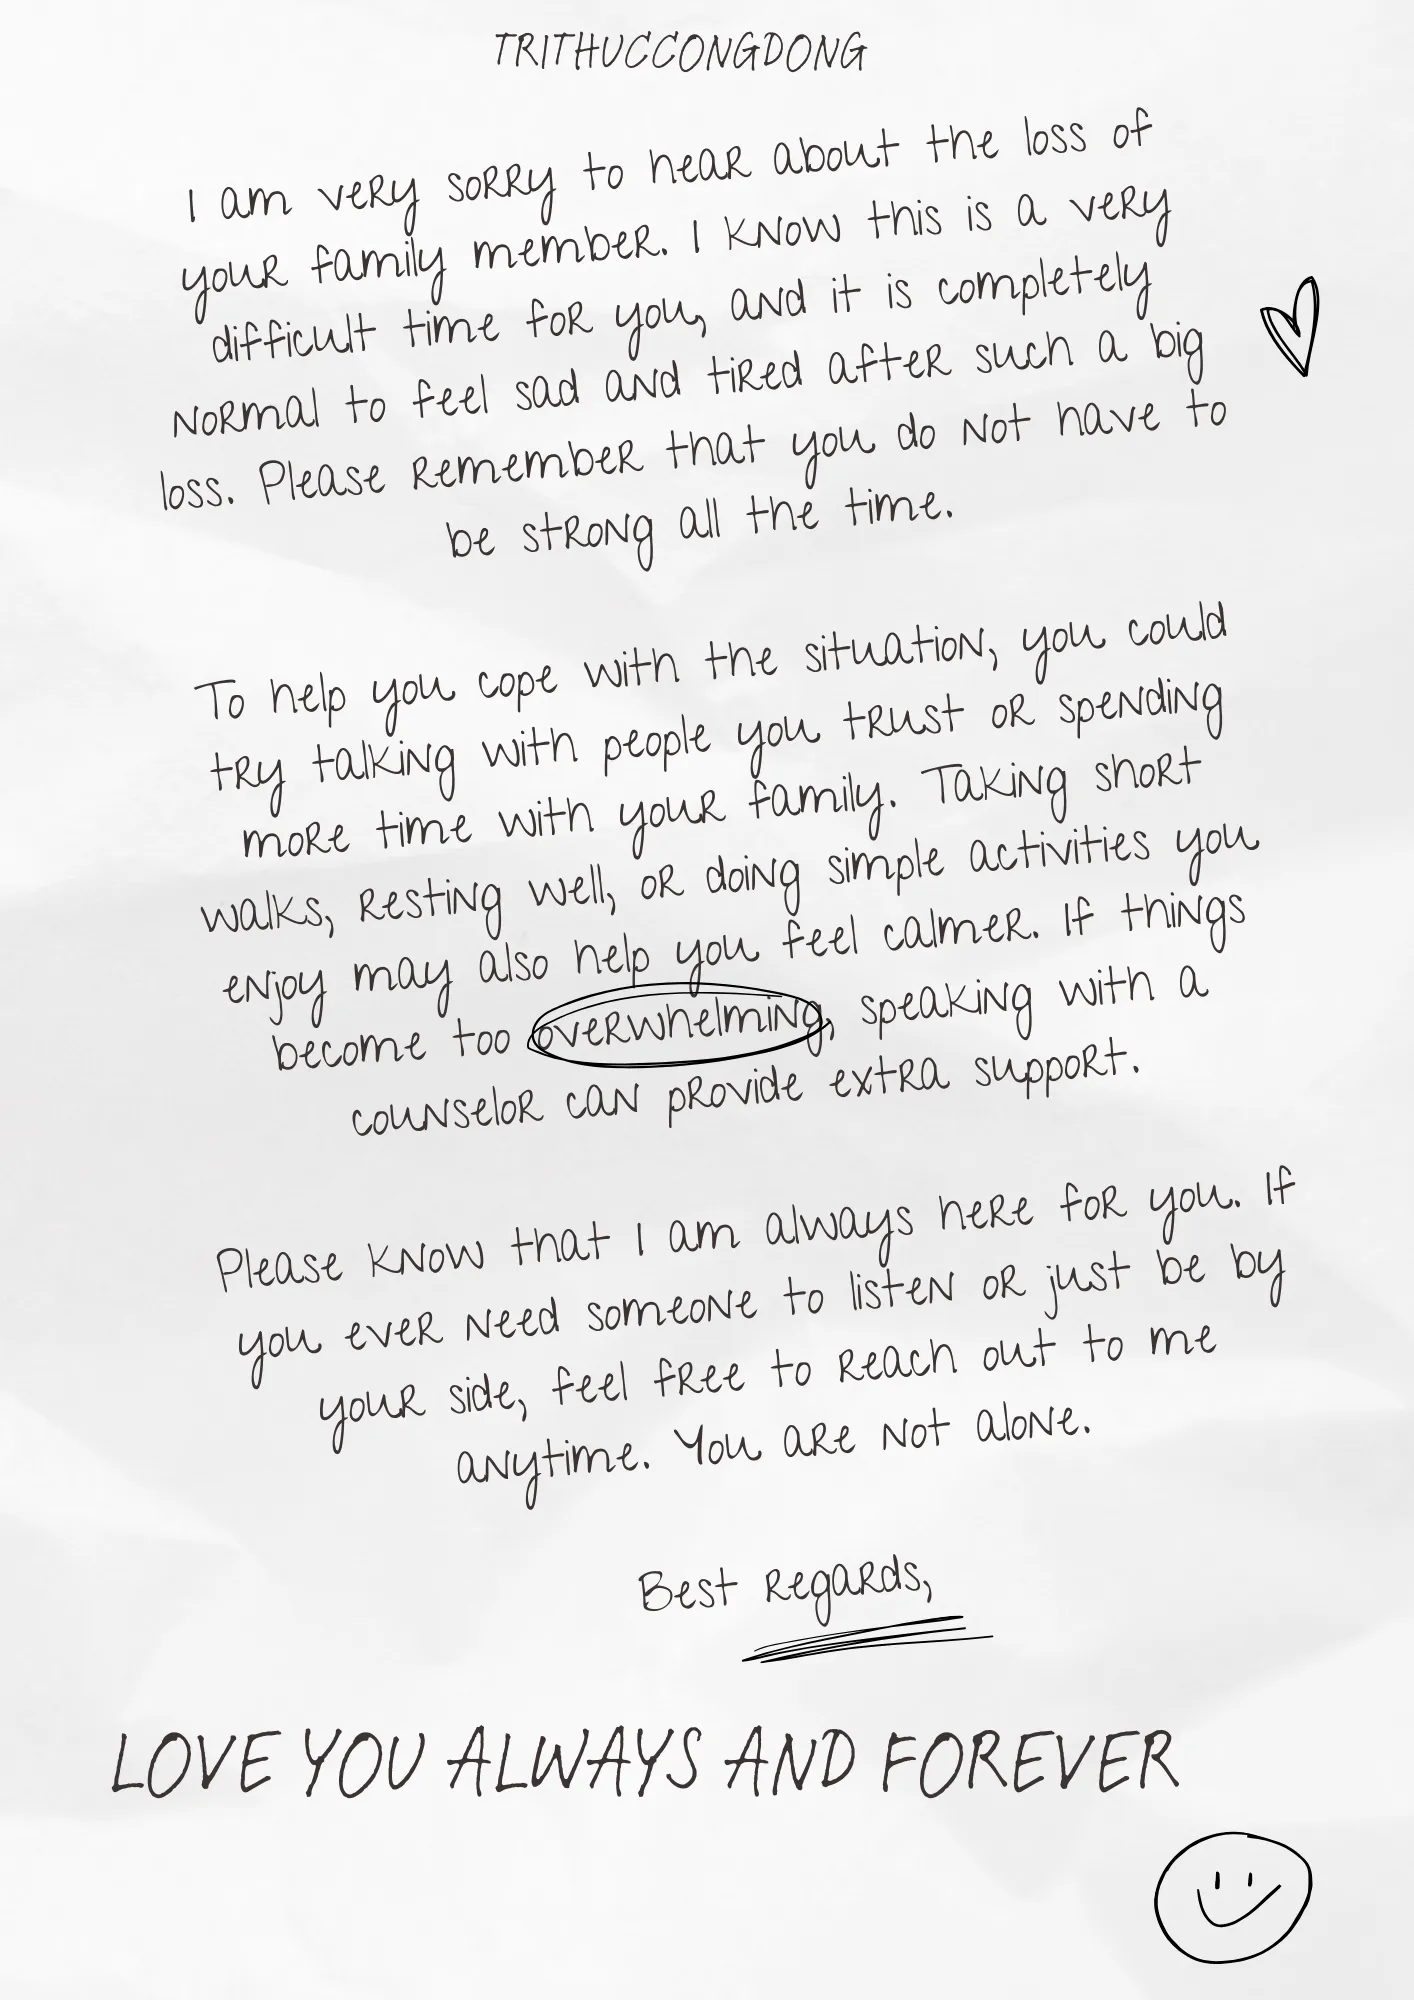 TRITHUCCONGDONG
I am very sorry to hear about the loss of
your family member. I know this is a very
difficult time for you, and it is completely
normal to feel sad and tired after such a big
loss. Please remember that you do not have to
be strong all the time.
To help you cope with the situation, you could
try talking with people you trust or spending
more time with your family. Taking short
walks, resting well, or doing simple activities you
enjoy may also help you feel calmer. If things
become too overwhelming, speaking with a
counselor can provide extra support.
Please know that I am always here for you. If
you ever need someone to listen or just be by
your side, feel free to reach out to me
anytime. You are not alone.
Best regards,
LOVE YOU ALWAYS AND FOREVER